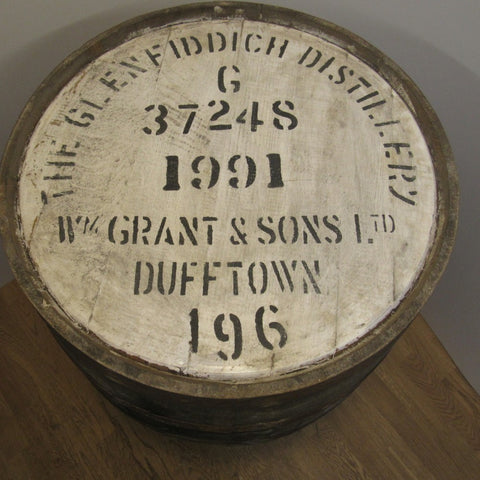 THE GLENFIDDICH DISTILLERY
G
37248
1991
Wm GRANT & SONS LTD
DUFFTOWN
196